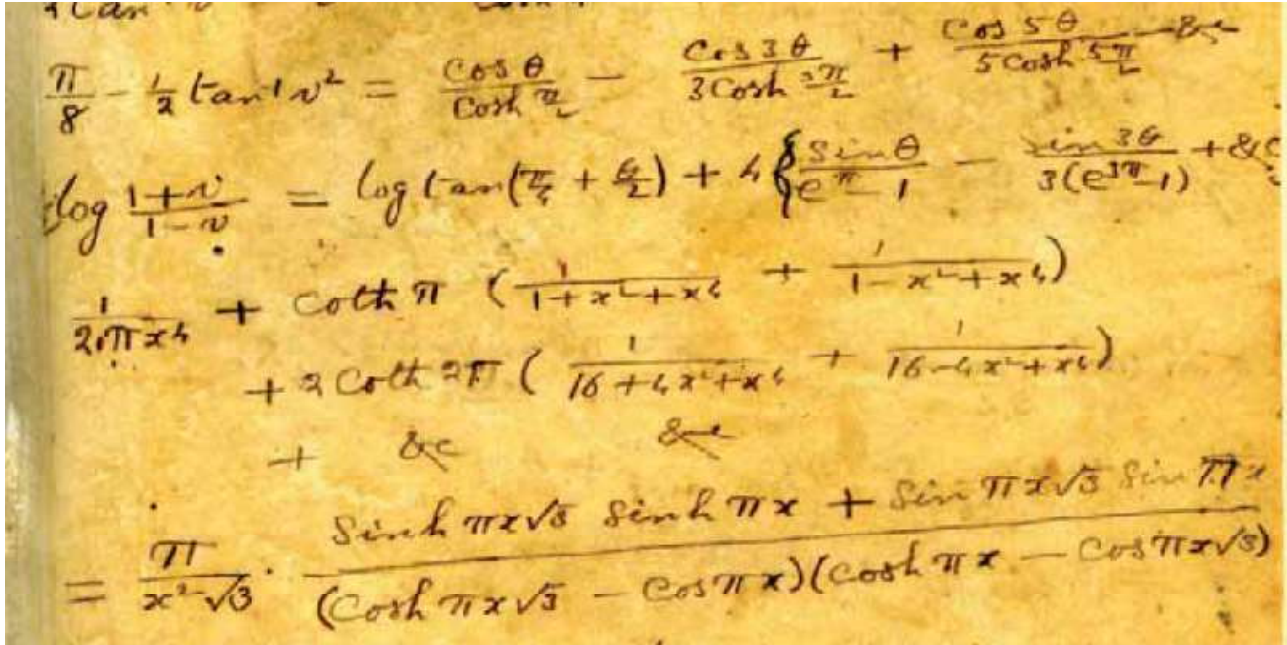 π/8 - 1/2 tan⁻¹v² = cos θ/cosh π/2 - cos 3θ/3 cosh 3π/2 + cos 5θ/5 cosh 5π/2 - &c
log (1+v)/(1-v) = log tan(π/4 + θ/2) + 4{sin θ/(e^π - 1) - sin 3θ/3(e^{3π} - 1) + &c
1/2πx⁴ + coth π (1/(1+x²+x⁴) + 1/(1-x²+x⁴))
+ 2 coth 2π (1/(16+4x²+x⁴) + 1/(16-4x²+x⁴))
+ &c &c
= π/x²√3 · (sinh πx√3 sinh πx + sin πx√3 sin πx)/(cosh πx√3 - cos πx)(cosh πx - cos πx√3)